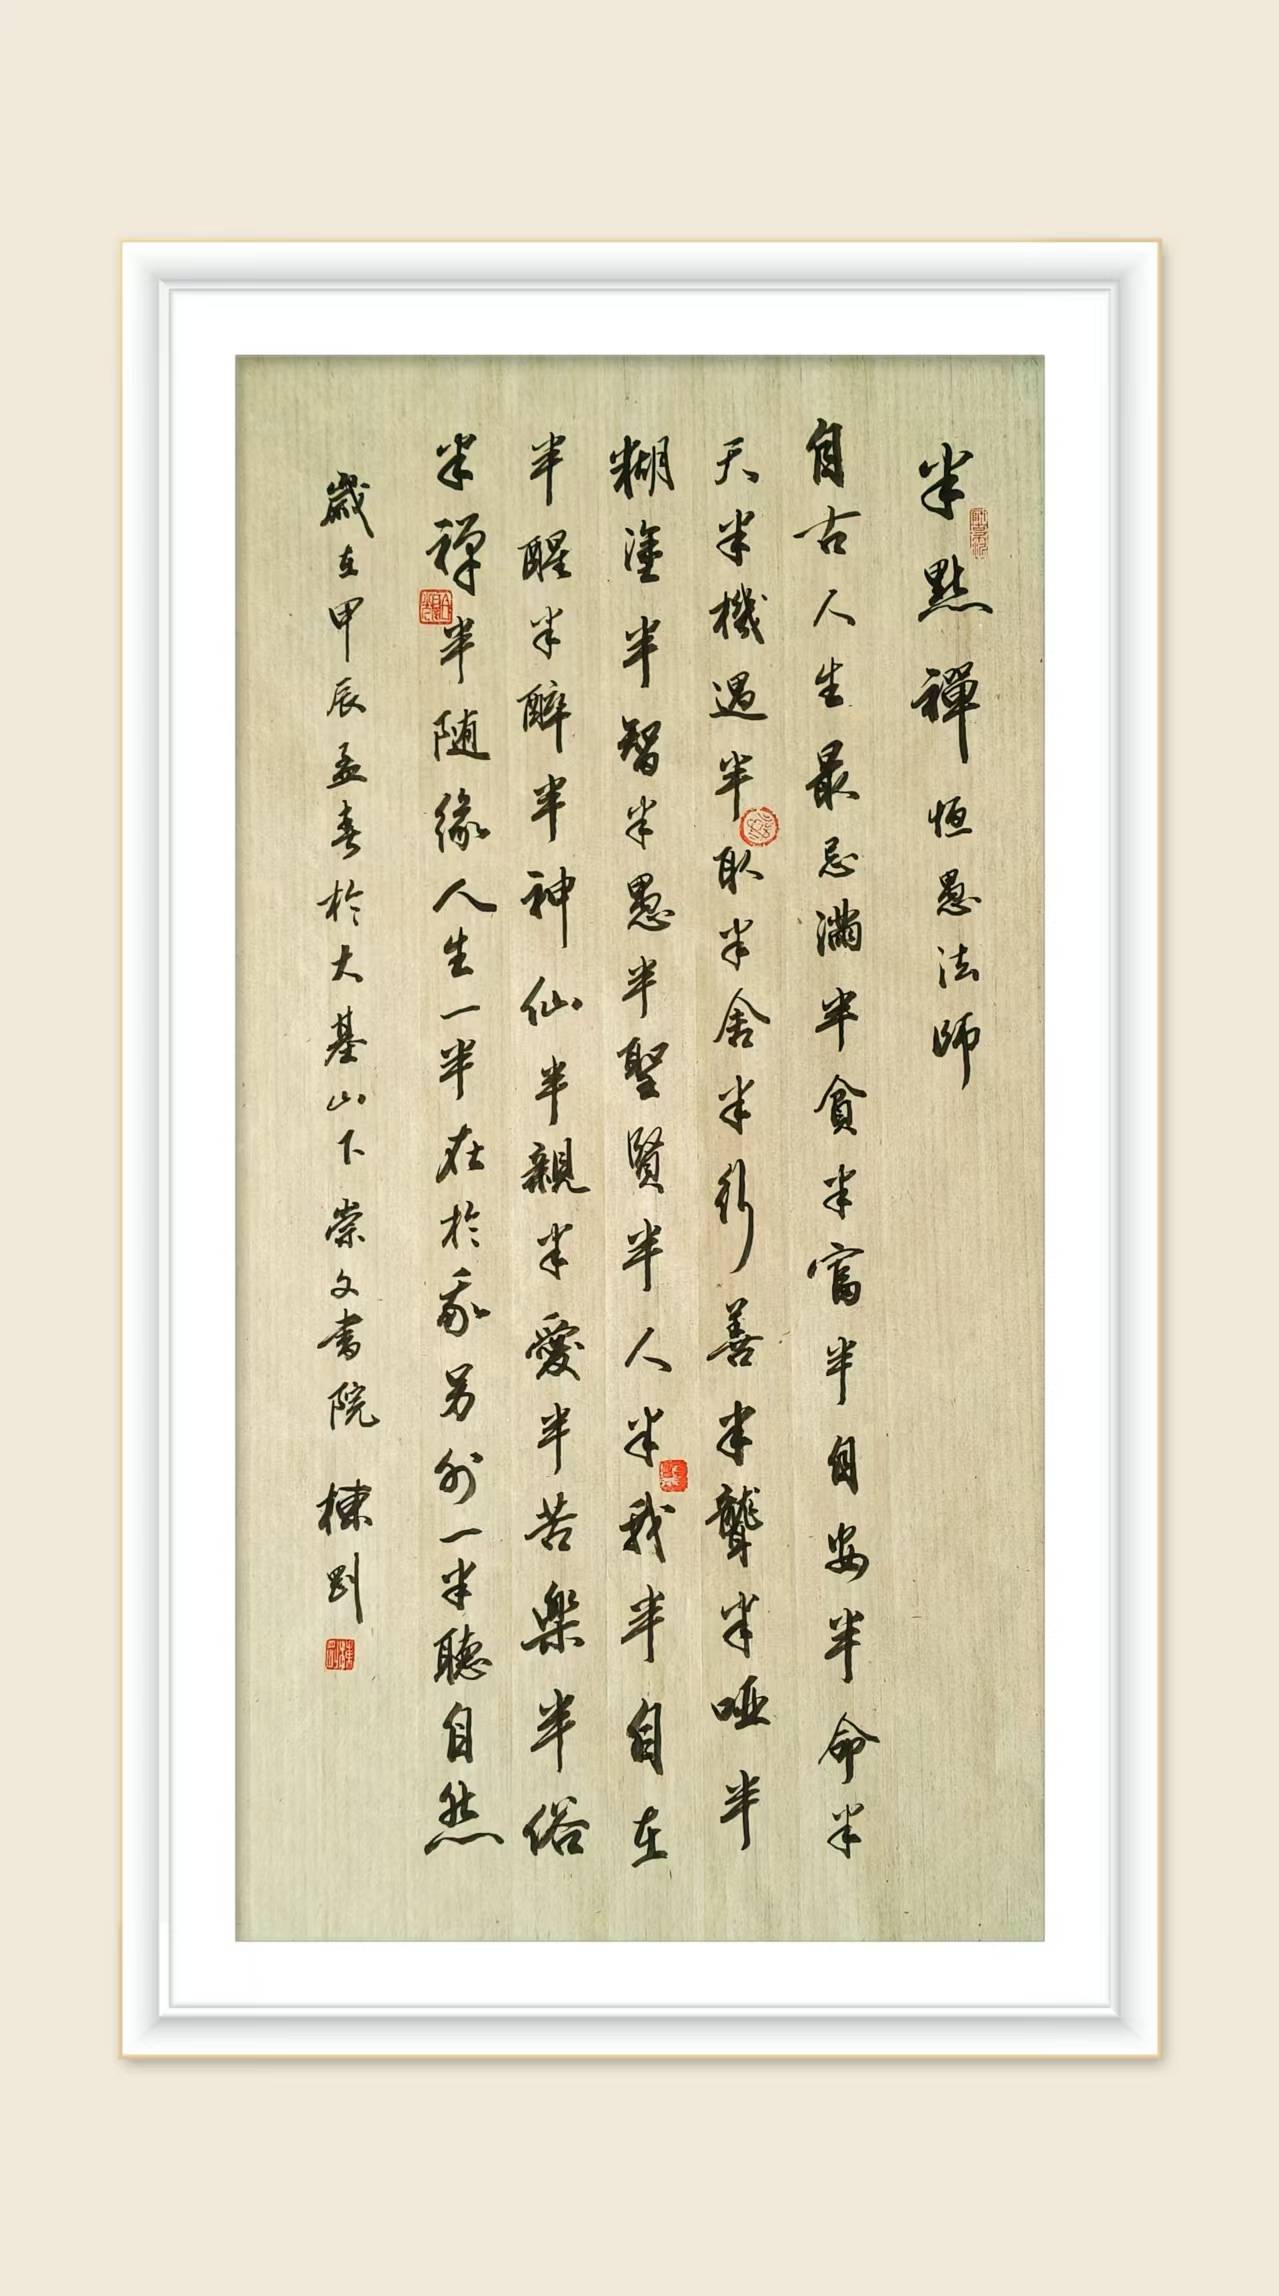 半點禪 恒愚法師
自古人生最忌滿半貧半富半自安半命半
天半機遇半取半舍半行善半聾半啞半
糊塗半半智半愚半聖賢半人半我半自在
半醒半醉半神仙半親半愛半苦樂半俗
半禪半随緣人生一半在於我另外一半聽自然
歲在甲辰孟春於大基山下崇文書院 棟剛